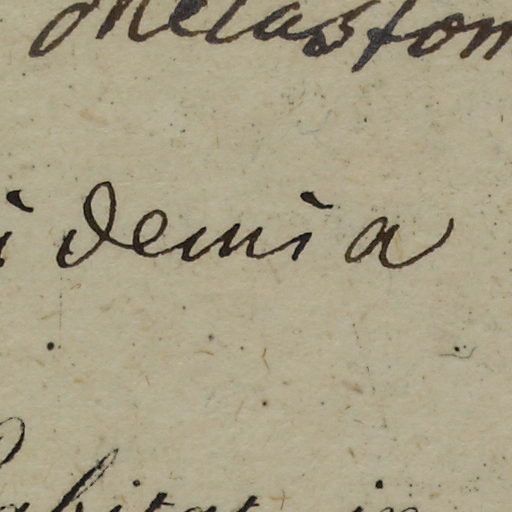 Melastom
idemia
abitat in